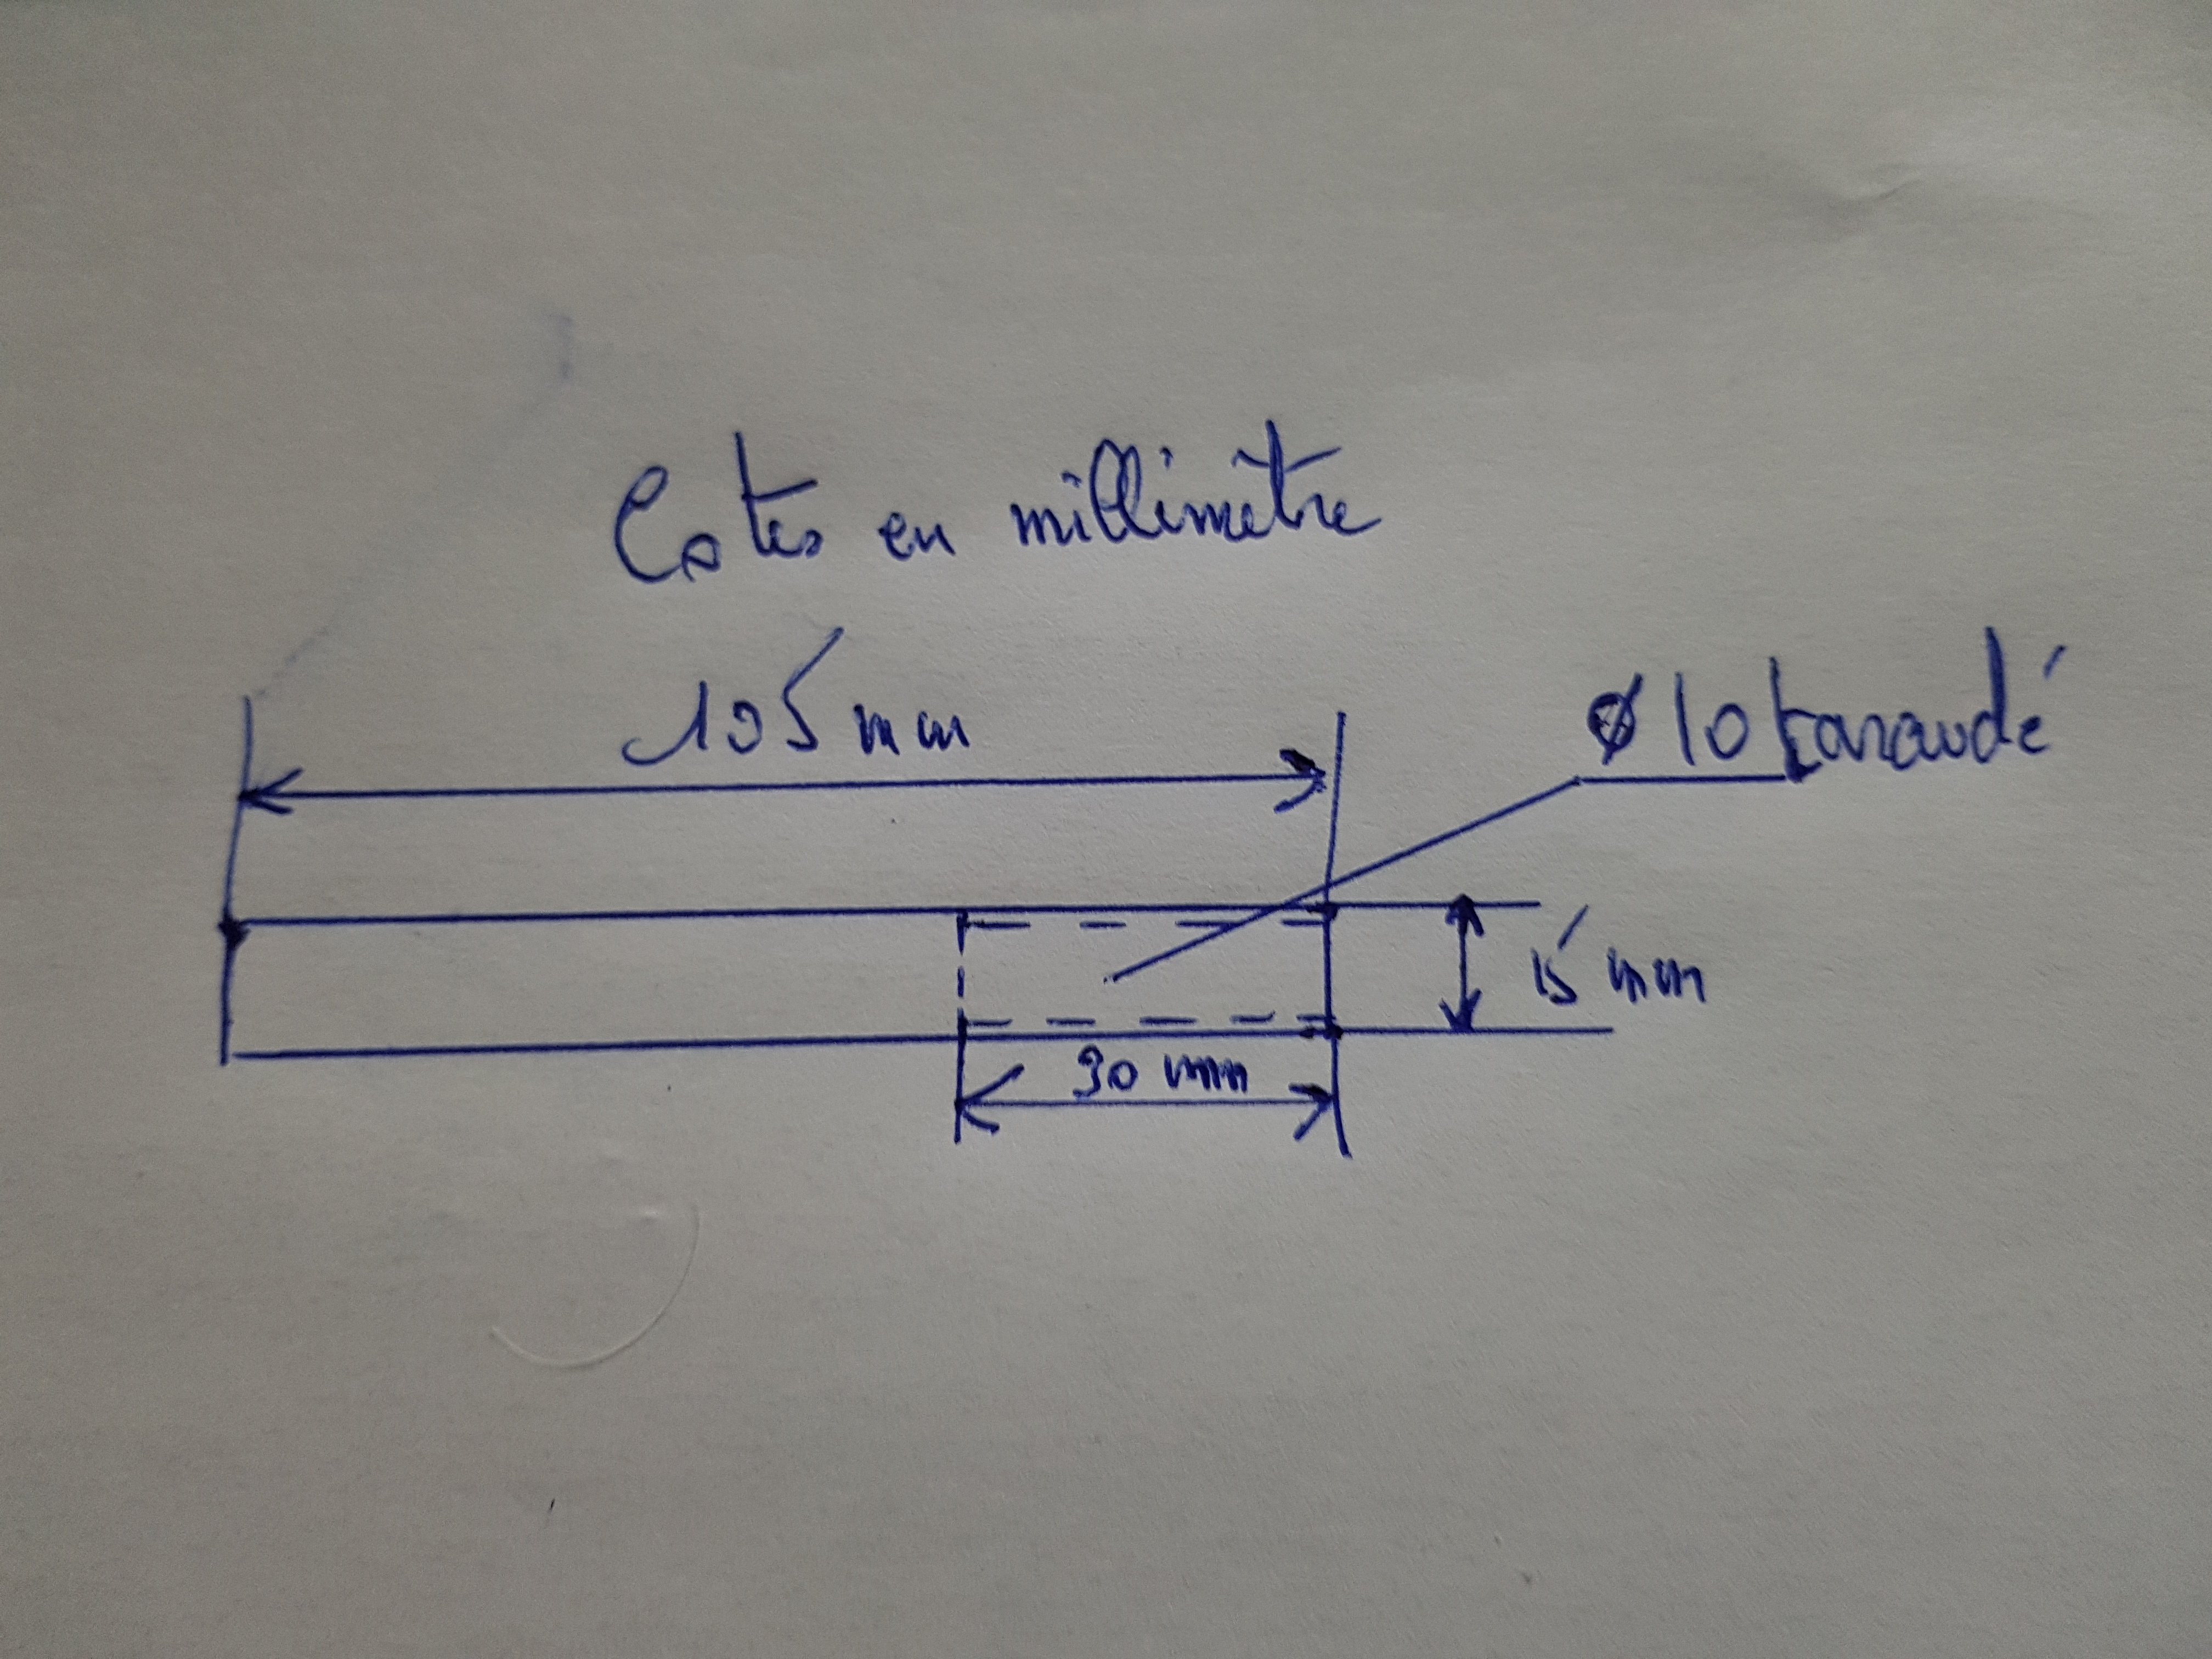 Cotes en millimètre
105 mm
Ø 10 taraudé
15 mm
30 mm